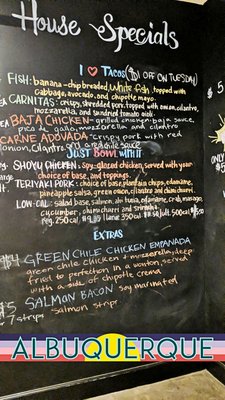 House Specials
I ♥ Tacos ($1 OFF ON TUESDAY)
FISH: banana-chip breaded, white fish, topped with
cabbage, avocado, and chipotle mayo
CARNITAS: crispy, shredded pork, topped with onion, cilantro,
mozzarella, and sundried tomato aioli.
BAJA CHICKEN- grilled chicken, baja sauce,
pico de gallo, mozzarella and cilantro
CARNE ADOVADA- crispy pork with red
onion, cilantro, and chile sauce
JUST BOWL WITH IT
SHOYU CHICKEN: soy-glazed chicken, served with your
choice of base, and toppings.
TERIYAKI PORK: choice of base, plantain chips, edamame,
pineapple salsa, green onion, cilantro and chimichurri.
LOW-CAL: salad base, salmon, ahi tuna, edamame, crab, masago,
cucumber, chimichurri and sriracha
reg. 250cal
350cal
500cal
EXTRAS
$4 GREEN CHILE CHICKEN EMPANADA
green chile chicken + mozzarella, deep
fried to perfection in a wonton, served
with a side of chipotle crema
$5 SALMON BACON soy marinated
7 strips salmon strips
$5
ONLY
ALBUQUERQUE